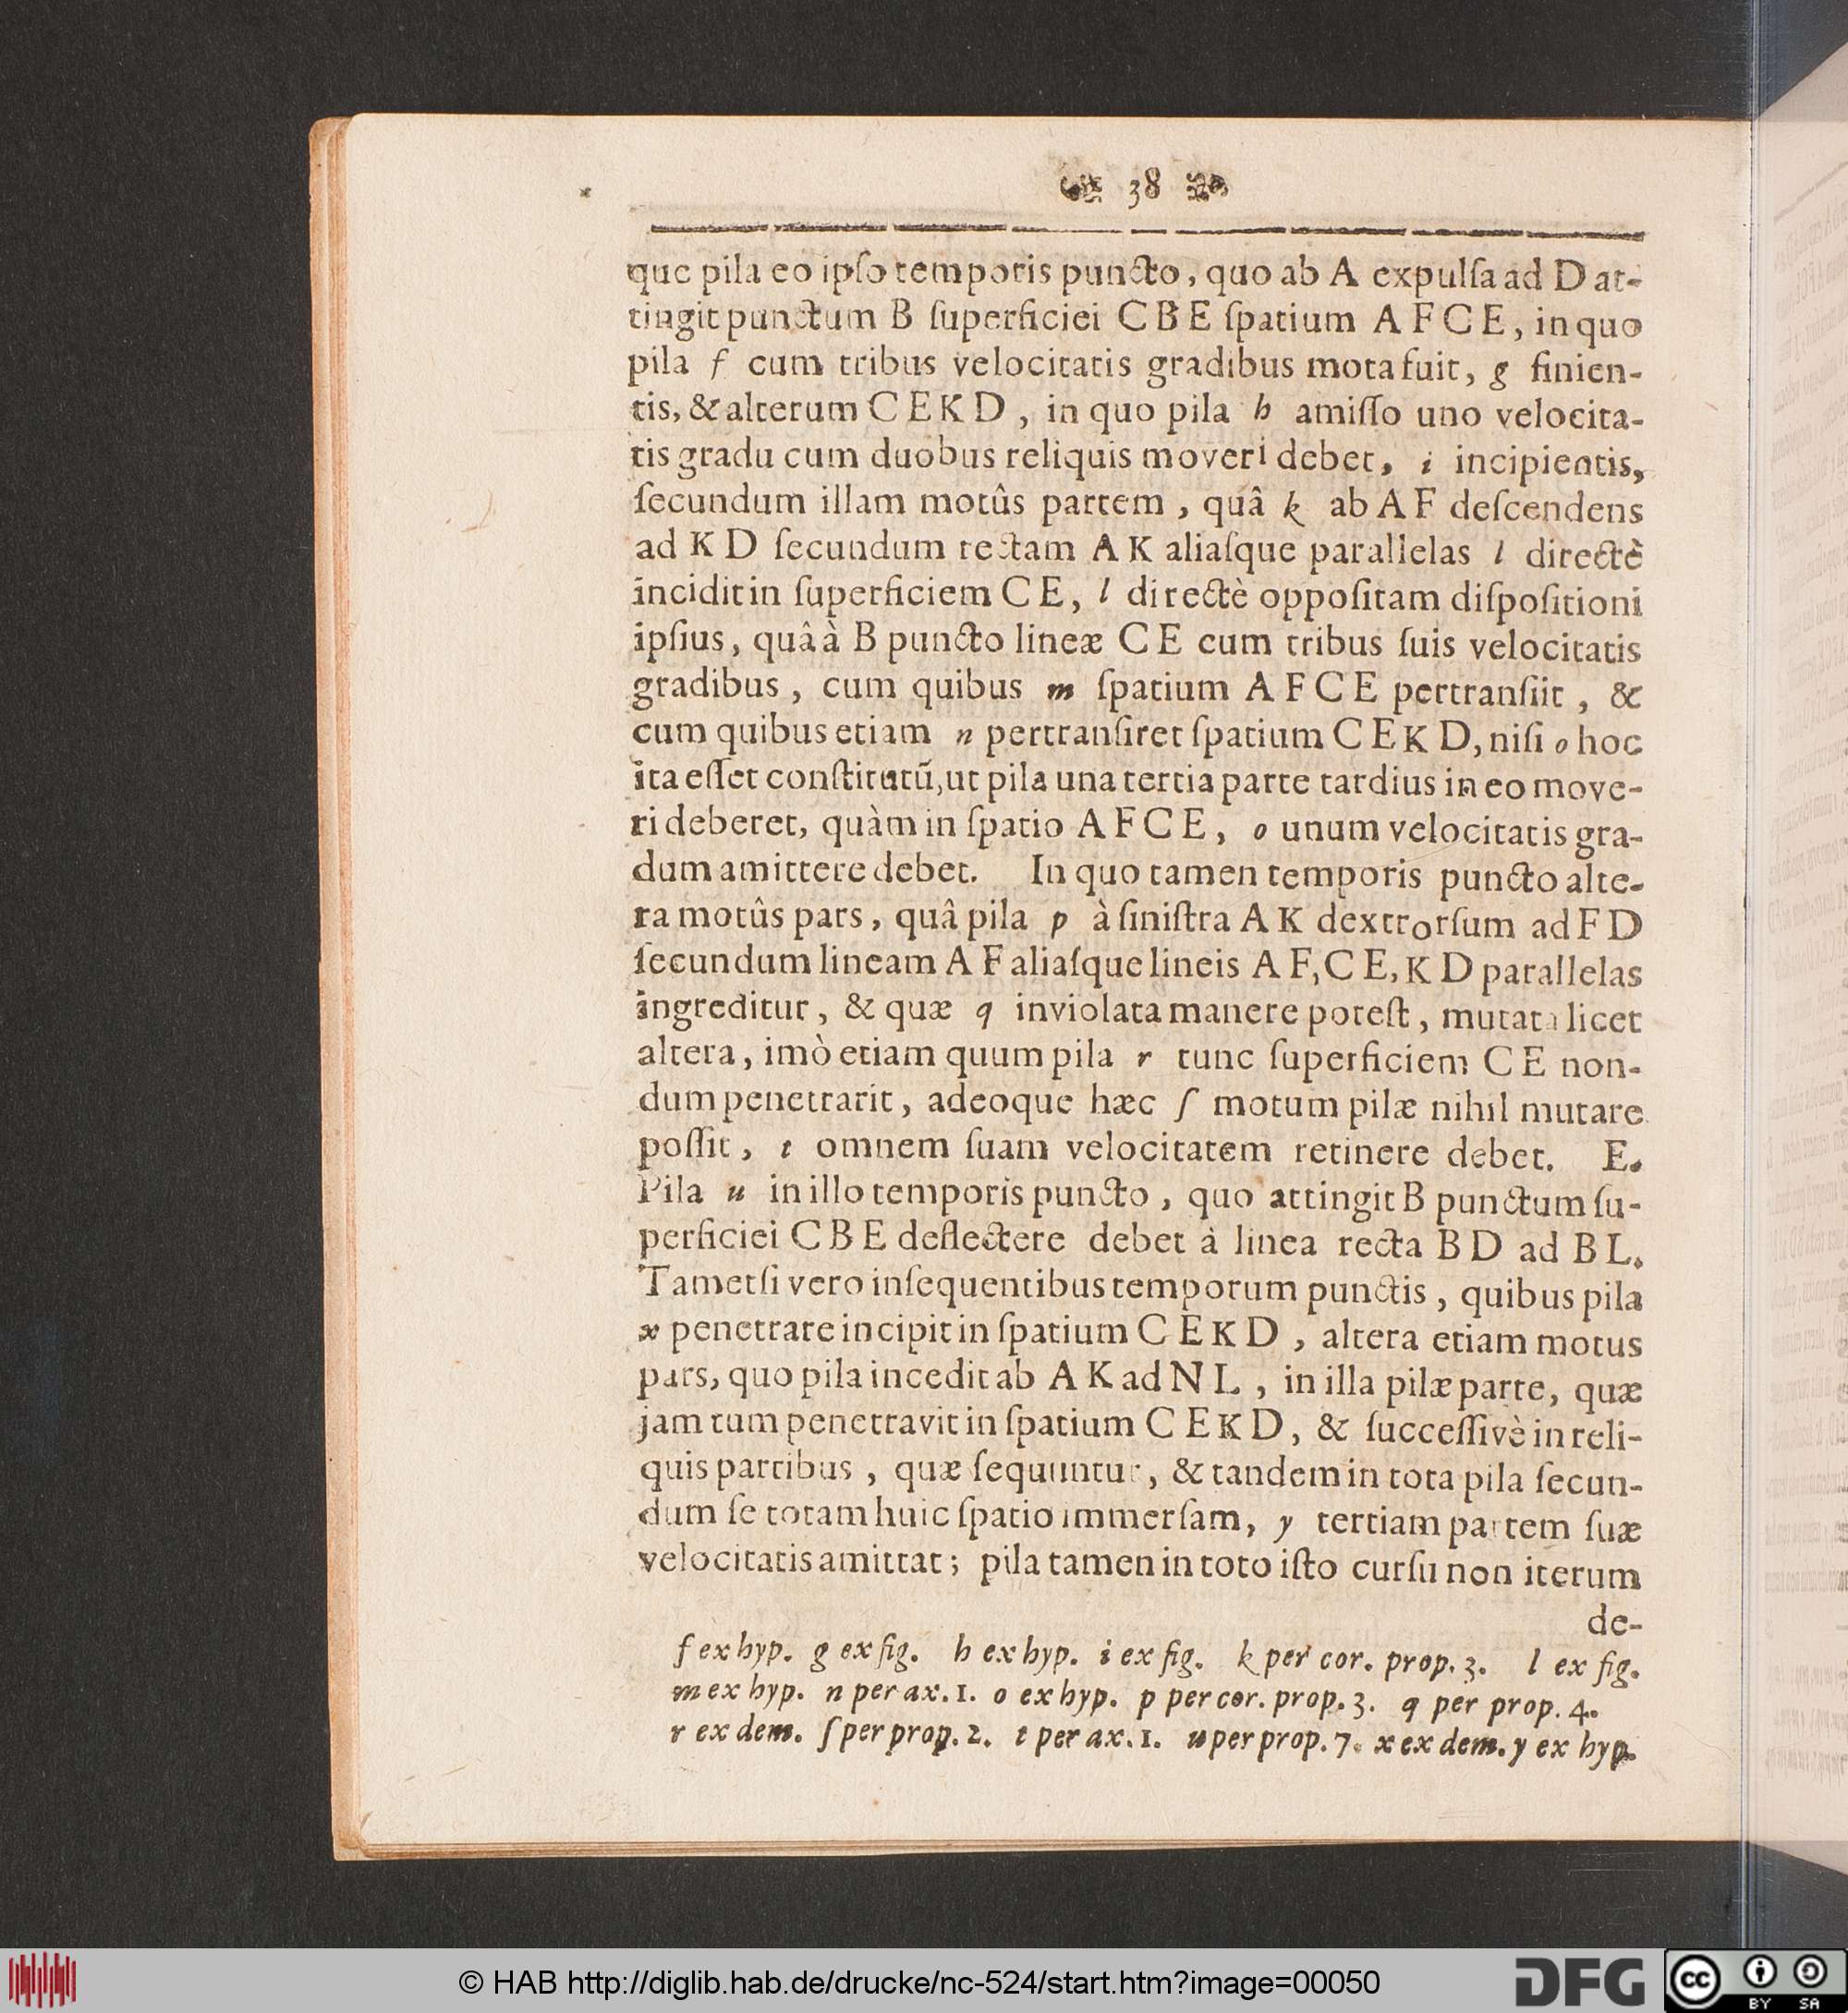 38
que pila eo ipſo temporis puncto, quo ab A expulſa ad D at-
tingit punctum B ſuperficiei C B E ſpatium A F C E, in quo
pila f cum tribus velocitatis gradibus mota fuit, g finien-
tis, & alterum C E K D, in quo pila h amiſſo uno velocita-
tis gradu cum duobus reliquis moveri debet, i incipientis,
ſecundum illam motûs partem, quâ k ab A F deſcendens
ad K D ſecundum rectam A K aliaſque parallelas l directè
incidit in ſuperficiem C E, l directè oppoſitam diſpoſitioni
ipſius, quâ à B puncto lineæ C E cum tribus ſuis velocitatis
gradibus, cum quibus m ſpatium A F C E pertranſiit, &
cum quibus etiam n pertranſiret ſpatium C E K D, niſi o hoc
ita eſſet conſtitutũ, ut pila una tertia parte tardius in eo move-
ri deberet, quàm in ſpatio A F C E, o unum velocitatis gra-
dum amittere debet. In quo tamen temporis puncto alte-
ra motûs pars, quâ pila p à ſiniſtra A K dextrorſum ad F D
ſecundum lineam A F aliaſque lineis A F, C E, K D parallelas
ingreditur, & quæ q inviolata manere poteſt, mutata licet
altera, imò etiam quum pila r tunc ſuperficiem C E non-
dum penetrarit, adeoque hæc ſ motum pilæ nihil mutare
poſſit, t omnem ſuam velocitatem retinere debet. E.
Pila u in illo temporis puncto, quo attingit B punctum ſu-
perficiei C B E deflectere debet à linea recta B D ad B L.
Tametſi vero inſequentibus temporum punctis, quibus pila
x penetrare incipit in ſpatium C E K D, altera etiam motus
pars, quo pila incedit ab A K ad N L, in illa pilæ parte, quæ
jam tum penetravit in ſpatium C E K D, & ſucceſſivè in reli-
quis partibus, quæ ſequuntur, & tandem in tota pila ſecun-
dum ſe totam huic ſpatio immerſam, y tertiam partem ſuæ
velocitatis amittat; pila tamen in toto iſto curſu non iterum
de-
f ex hyp. g ex fig. h ex hyp. i ex fig. k per cor. prop. 3. l ex fig.
m ex hyp. n per ax. 1. o ex hyp. p per cor. prop. 3. q per prop. 4.
r ex dem. ſ per prop. 2. t per ax. 1. u per prop. 7. x ex dem. y ex hyp.
© HAB http://diglib.hab.de/drucke/nc-524/start.htm?image=00050
DFG
cc
BY SA